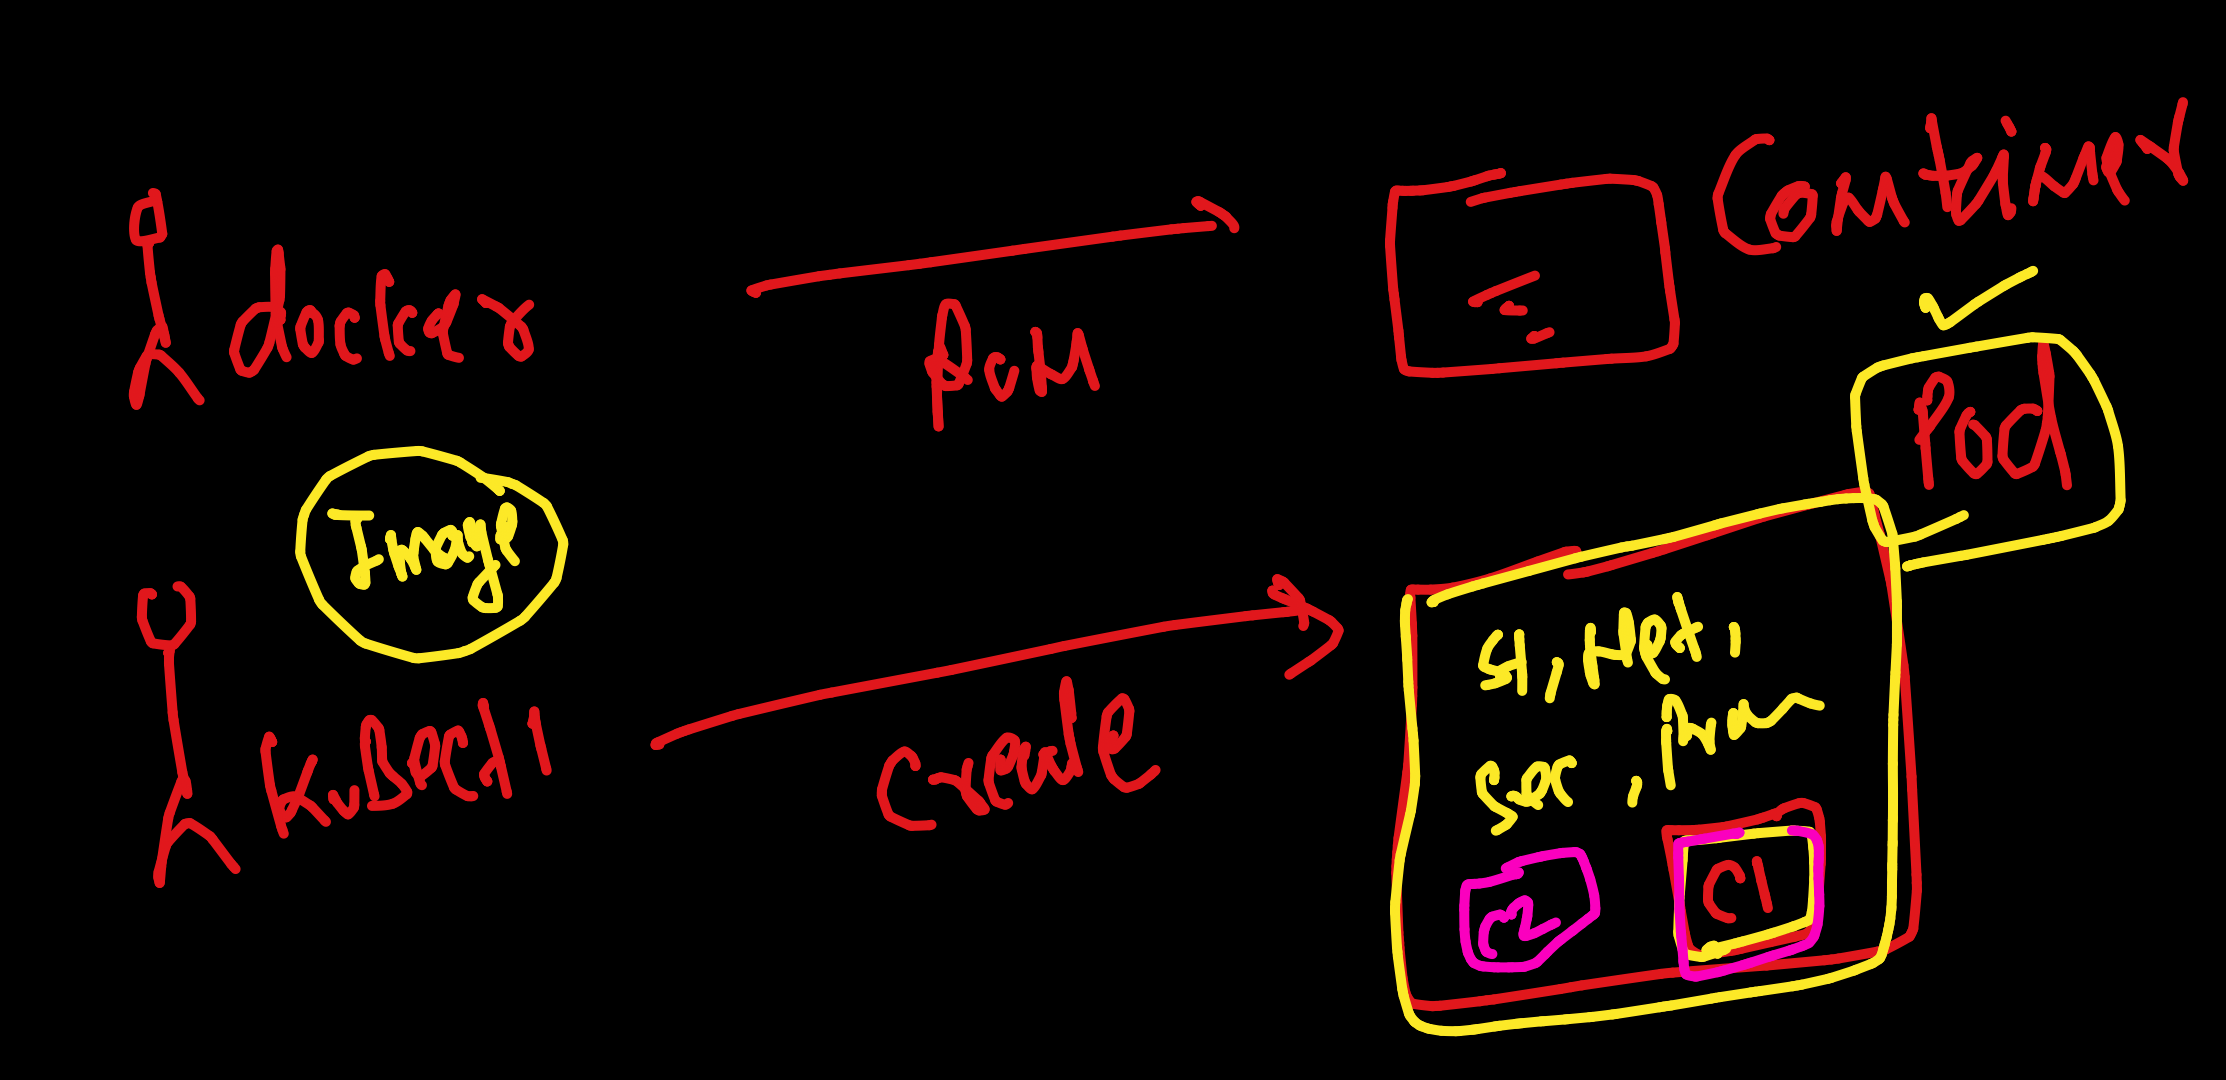 docker
Run
Container
Image
Pod
Kubectl
Create
St, Net,
Sec,
C2
C1